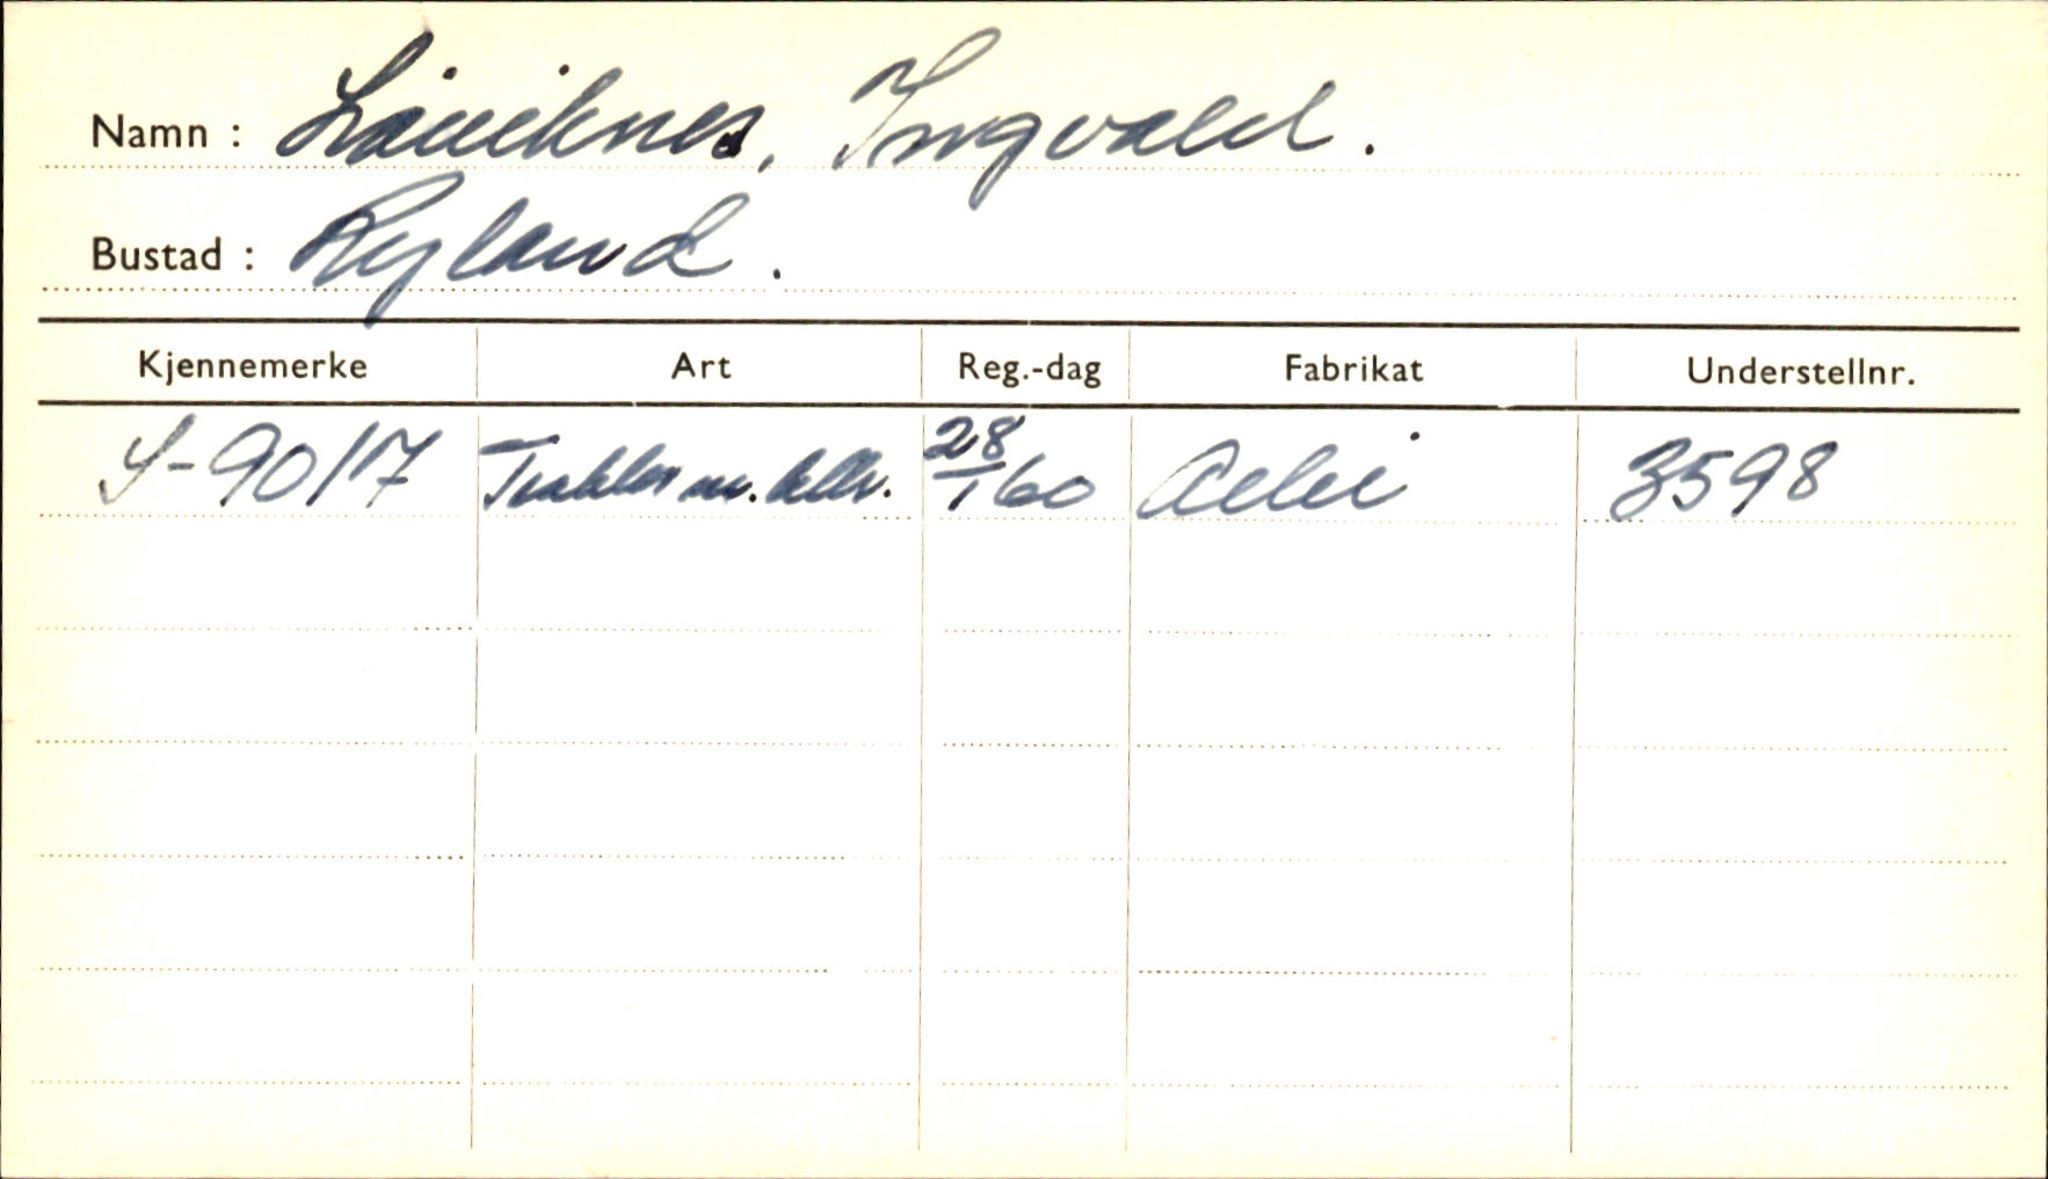 Namn : Låviknes, Ingvald.
Bustad : Ryland.
Kjennemerke Art Reg.-dag Fabrikat Understellnr.
S-9017 Traktor m. 28/1 60 Aebi 3598